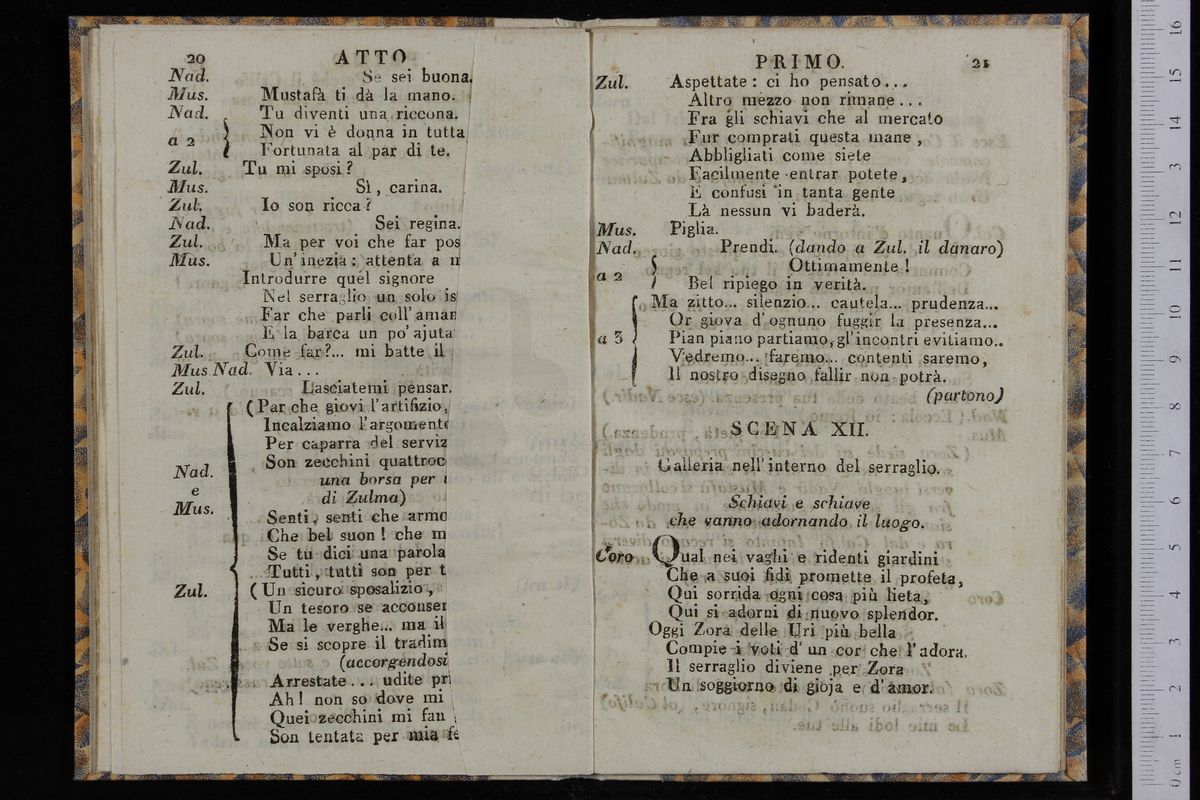 20 ATTO
Nad. Se sei buona.
Mus. Mustafà ti dà la mano.
Nad. Tu diventi una riccona.
a 2 Non vi è donna in tutta
Fortunata al par di te.
Zul. Tu mi sposi?
Mus. Sì, carina.
Zul. Io son ricca?
Nad. Sei regina.
Zul. Ma per voi che far pos
Mus. Un' inezia: attenta a
Introdurre quel signore
Nel serraglio un solo is
Far che parli coll' aman
E la barca un po' ajuta
Zul. Come far?... mi batte il
Mus Nad. Via...
Zul. Lasciatemi pensar.
(Par che giovi l'artifizio,
Incalziamo l'argomento
Per caparra del serviz
Son zecchini quattroc
una borsa per
di Zulma)
Nad. e Mus.
Senti, senti che armo
Che bel suon! che m
Se tu dici una parola
Tutti, tutti son per t
Zul. (Un sicuro sposalizio,
Un tesoro se acconsen
Ma le verghe... ma il
Se si scopre il tradim
(accorgendosi
Arrestate... udite pri
Ah! non so dove mi
Quei zecchini mi fan
Son tentata per mia fe
PRIMO. 21
Zul. Aspettate: ci ho pensato...
Altro mezzo non rimane...
Fra gli schiavi che al mercato
Fur comprati questa mane,
Abbligliati come siete
Facilmente entrar potete,
E confusi in tanta gente
Là nessun vi baderà.
Mus. Piglia.
Nad. Prendi. (dando a Zul. il danaro)
a 2 Ottimamente!
Bel ripiego in verità.
Ma zitto... silenzio... cautela... prudenza...
Or giova d'ognuno fuggir la presenza...
a 3 Pian piano partiamo, gl'incontri evitiamo..
Vedremo... faremo... contenti saremo,
Il nostro disegno fallir non potrà.
(partono)
SCENA XII.
Galleria nell' interno del serraglio.
Schiavi e schiave
che vanno adornando il luogo.
Coro Qual nei vaghi e ridenti giardini
Che a suoi fidi promette il profeta,
Qui sorrida ogni cosa più lieta,
Qui si adorni di nuovo splendor.
Oggi Zora delle Uri più bella
Compie i voti d' un cor che l'adora.
Il serraglio diviene per Zora
Un soggiorno di gioja e d'amor.